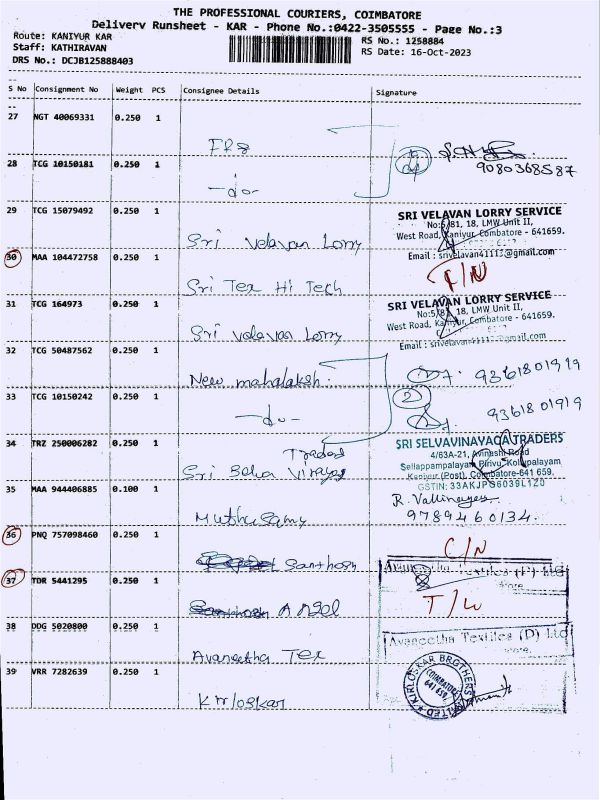 THE PROFESSIONAL COURIERS, COIMBATORE
Delivery Runsheet - KAR - Phone No.:0422-3505555 - Page No.:3
Route: KANIYUR KAR
RS No.: 1258884
Staff: KATHIRAVAN
RS Date: 16-Oct-2023
DRS No.: DCJB125888403
S No Consignment No Weight PCS Consignee Details Signature
27 NGT 40069331 0.250 1
28 TCG 10150181 0.250 1 -do-
9080368587
29 TCG 15079492 0.250 1 Sri Velavan Lorry
SRI VELAVAN LORRY SERVICE
No:5/81, 18, LMW Unit II,
West Road, Kaniyur, Coimbatore - 641659.
Email : srivelavan41113@gmail.com
30 MAA 104472758 0.250 1 Sri Tex Hi Tech
31 TCG 164973 0.250 1 Sri Velavan Lorry
SRI VELAVAN LORRY SERVICE
No:5/81, 18, LMW Unit II,
West Road, Kaniyur, Coimbatore - 641659.
32 TCG 50487562 0.250 1 New mahalaksh.
9361801919
33 TCG 10150242 0.250 1 -do-
2
9361801919
34 TRZ 250006282 0.250 1
SRI SELVAVINAYAGA TRADERS
4/63A-21, Avinashi Road
Sellappampalayam Pirivu, Kolupalayam
Kaniyur (Post), Coimbatore-641 659.
GSTIN: 33AKJPG6039L1Z0
35 MAA 944406885 0.100 1 Muthusamy
9789460134.
36 PNQ 757098460 0.250 1 Santhosh
C/N
37 TDR 5441295 0.250 1
38 DDG 5020800 0.250 1 Avaneetha Tex
Avaneetha Textiles (P) Ltd
39 VRR 7282639 0.250 1 Kirloskar
KIRLOSKAR BROTHERS LIMITED
COIMBATORE
641 659